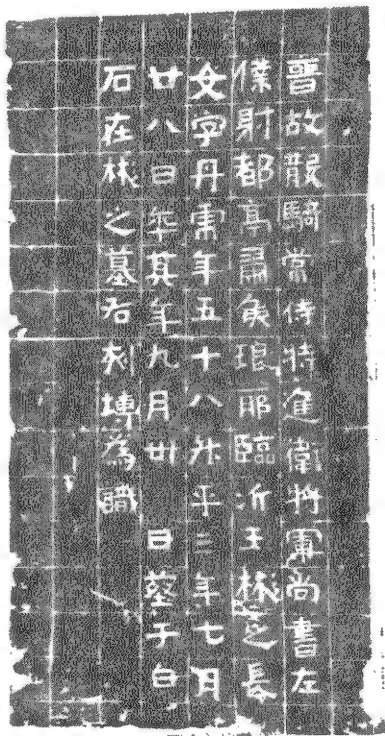 晉故散騎常侍特進衛將軍尚書左
僕射都亭肅侯琅耶臨沂王彬之長
女字丹虎年五十八升平三年七月
廿八日卒其年九月卅 日塟于白
石在彬之墓右刻塼為識